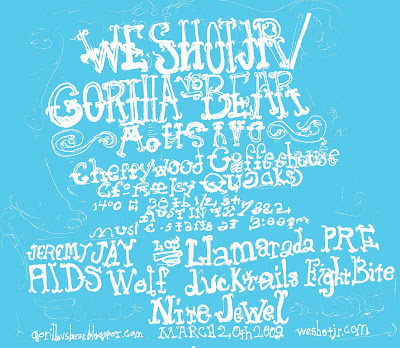 WE SHOT JR /
GORILLA VS BEAR
Cherrywood Coffeehouse
(formerly Quacks)
1400 E 38th 1/2 St
AUSTIN TX 78722
music starts at 2:00pm
JEREMY JAY Los Llamarada PRE
AIDS Wolf ducktails Fight Bite
Nite Jewel
gorillavsbear.blogspot.com MARCH 20th 2009 weshotjr.com